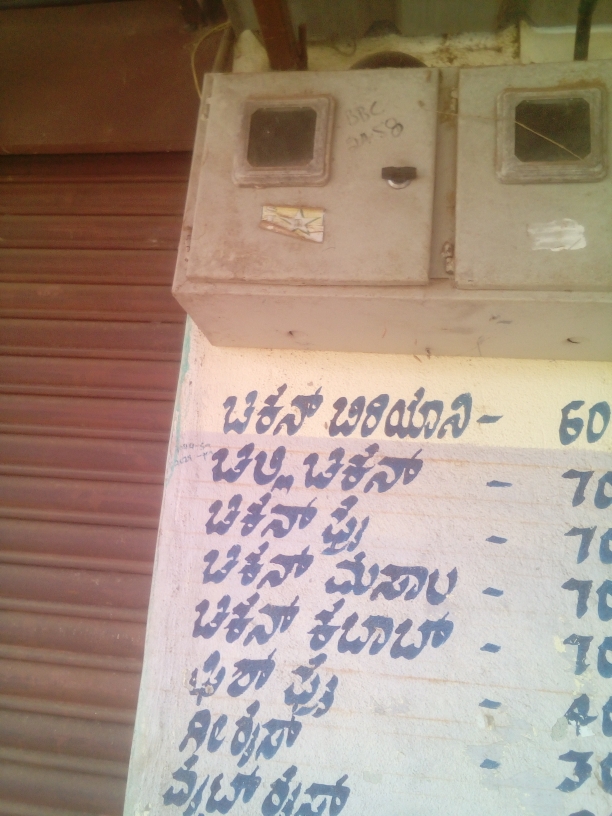 BBC
2458
ಚಿಕನ್ ಬಿರಿಯಾನಿ - 60
ಚಿಲ್ಲಿ ಚಿಕನ್ - 70
ಚಿಕನ್ ಫ್ರೈ - 70
ಚಿಕನ್ ಮಸಾಲ - 70
ಚಿಕನ್ ಕಬಾಬ್ - 70
ಫಿಶ್ ಫ್ರೈ - 40
ಗೀ ರೈಸ್ -
ವೈಟ್ ರೈಸ್